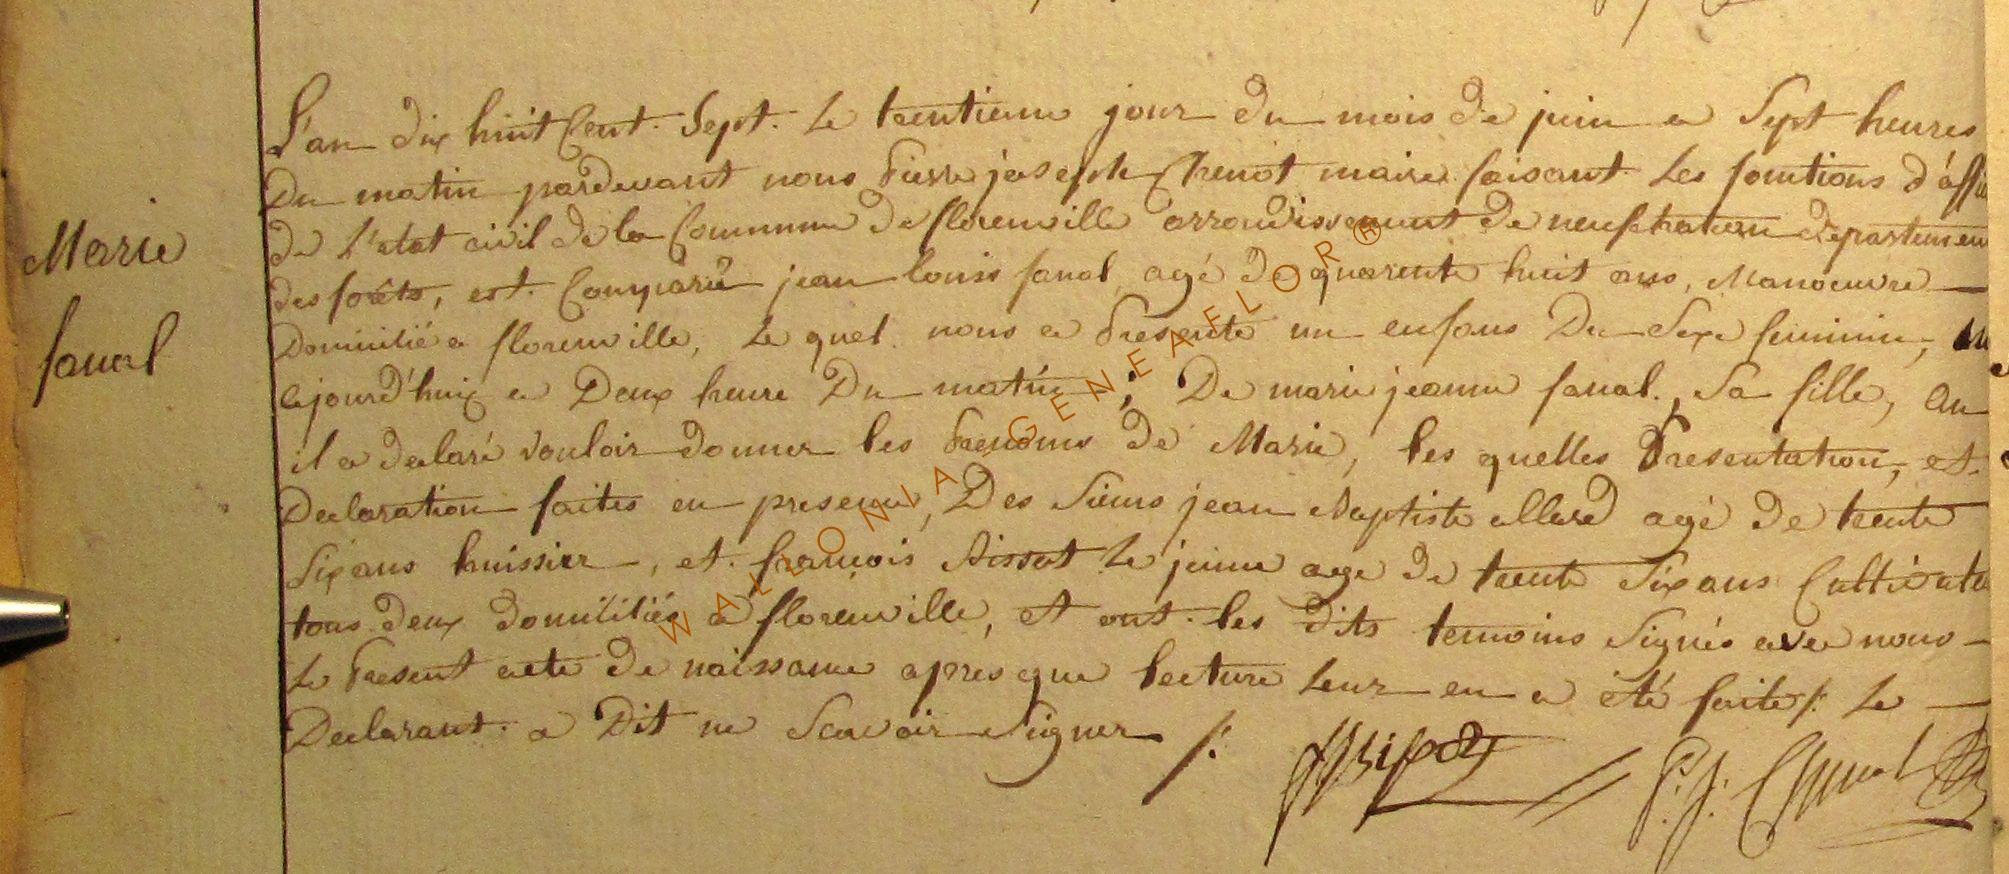 Marie
fanal
L'an dix huit Cent. Sept. Le trentieme jour du mois de juin a Sept heures
Du matin pardevant nous Pierre joseph Chenot maire faisant Les fonctions d'offi
de L'etat civil de la Commune de florenville arrondissement de neufchateau departemen
des forêts, est. Comparu jean louis fanal agé de quarente huit ans, Manoeuvre
Domicilié a florenville, Le quel nous a Presenté un enfans Du Sexe feminin,
ajourd'huix a Deux heure Du matin, De marie jeanne fanal. Sa fille, au
il a declaré vouloir donner les Prenoms de Marie, les quelles Presentation, et.
Declaration faites en presence, Des Sieurs jean Baptiste allard agé de trente
Six ans huissier, et. françois Bissot Le jeune age de trente Six ans Cultivate
tous deux domiciliés a florenville, et ont. les dits temoins Signés avec nous
Le Present acte de naissance apres que lecture Leur en a été faite /: Le
Declarant. a Dit ne Scavoir Signer /:
P. J. Chenot
WALLONIA GENEAFLOR ®